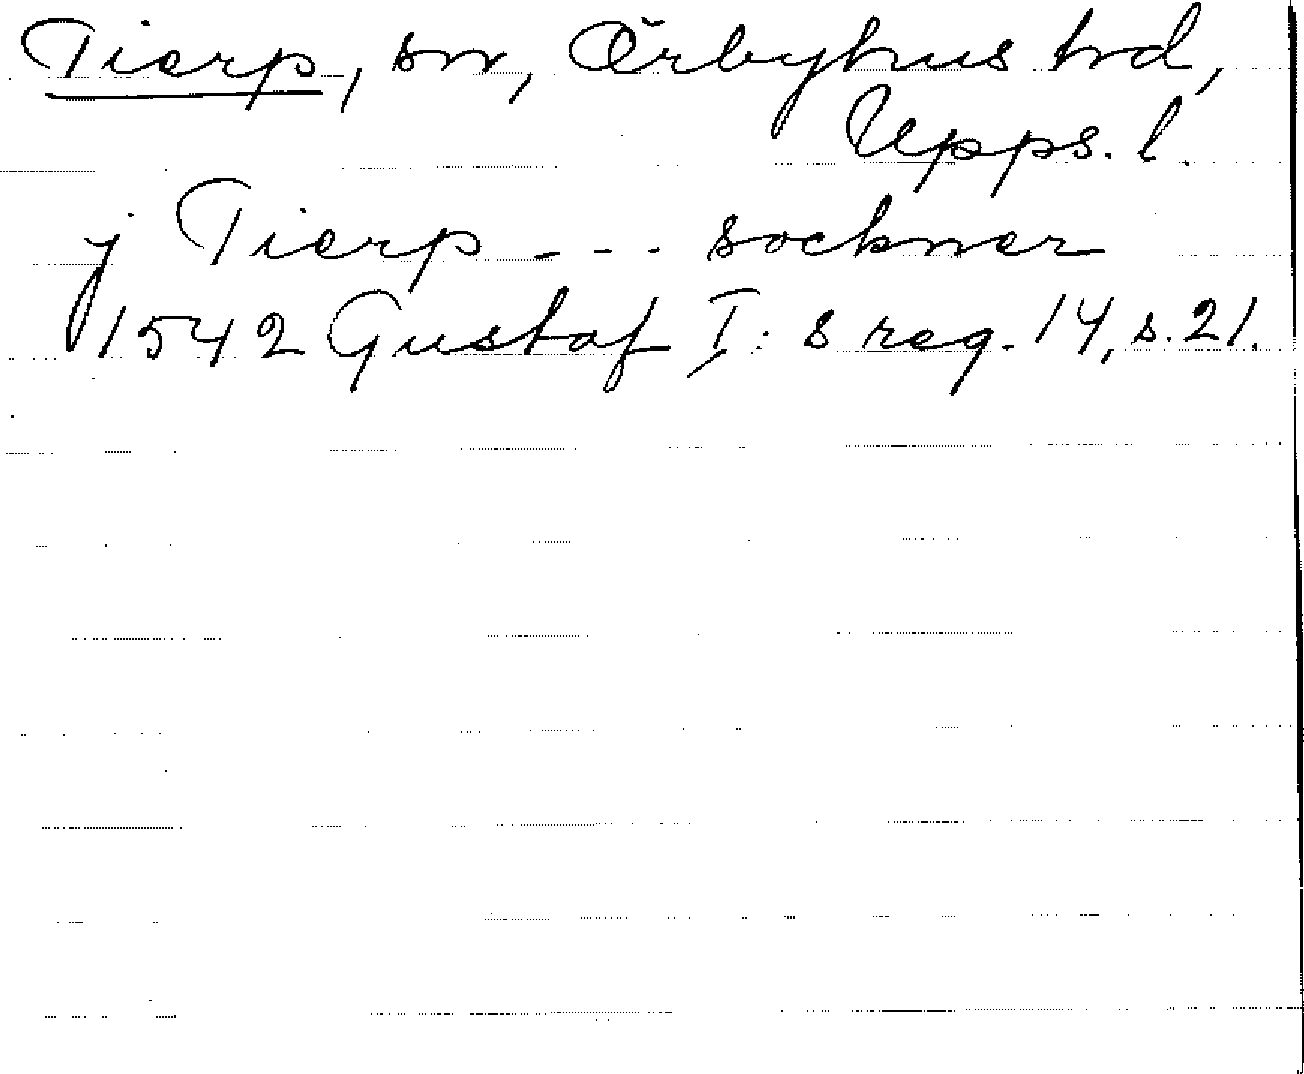 Tierp, sn, Örbyhus hd,
Upps. l.
j Tierp - - - sockner
1542 Gustaf I: s reg. 14, s. 21.